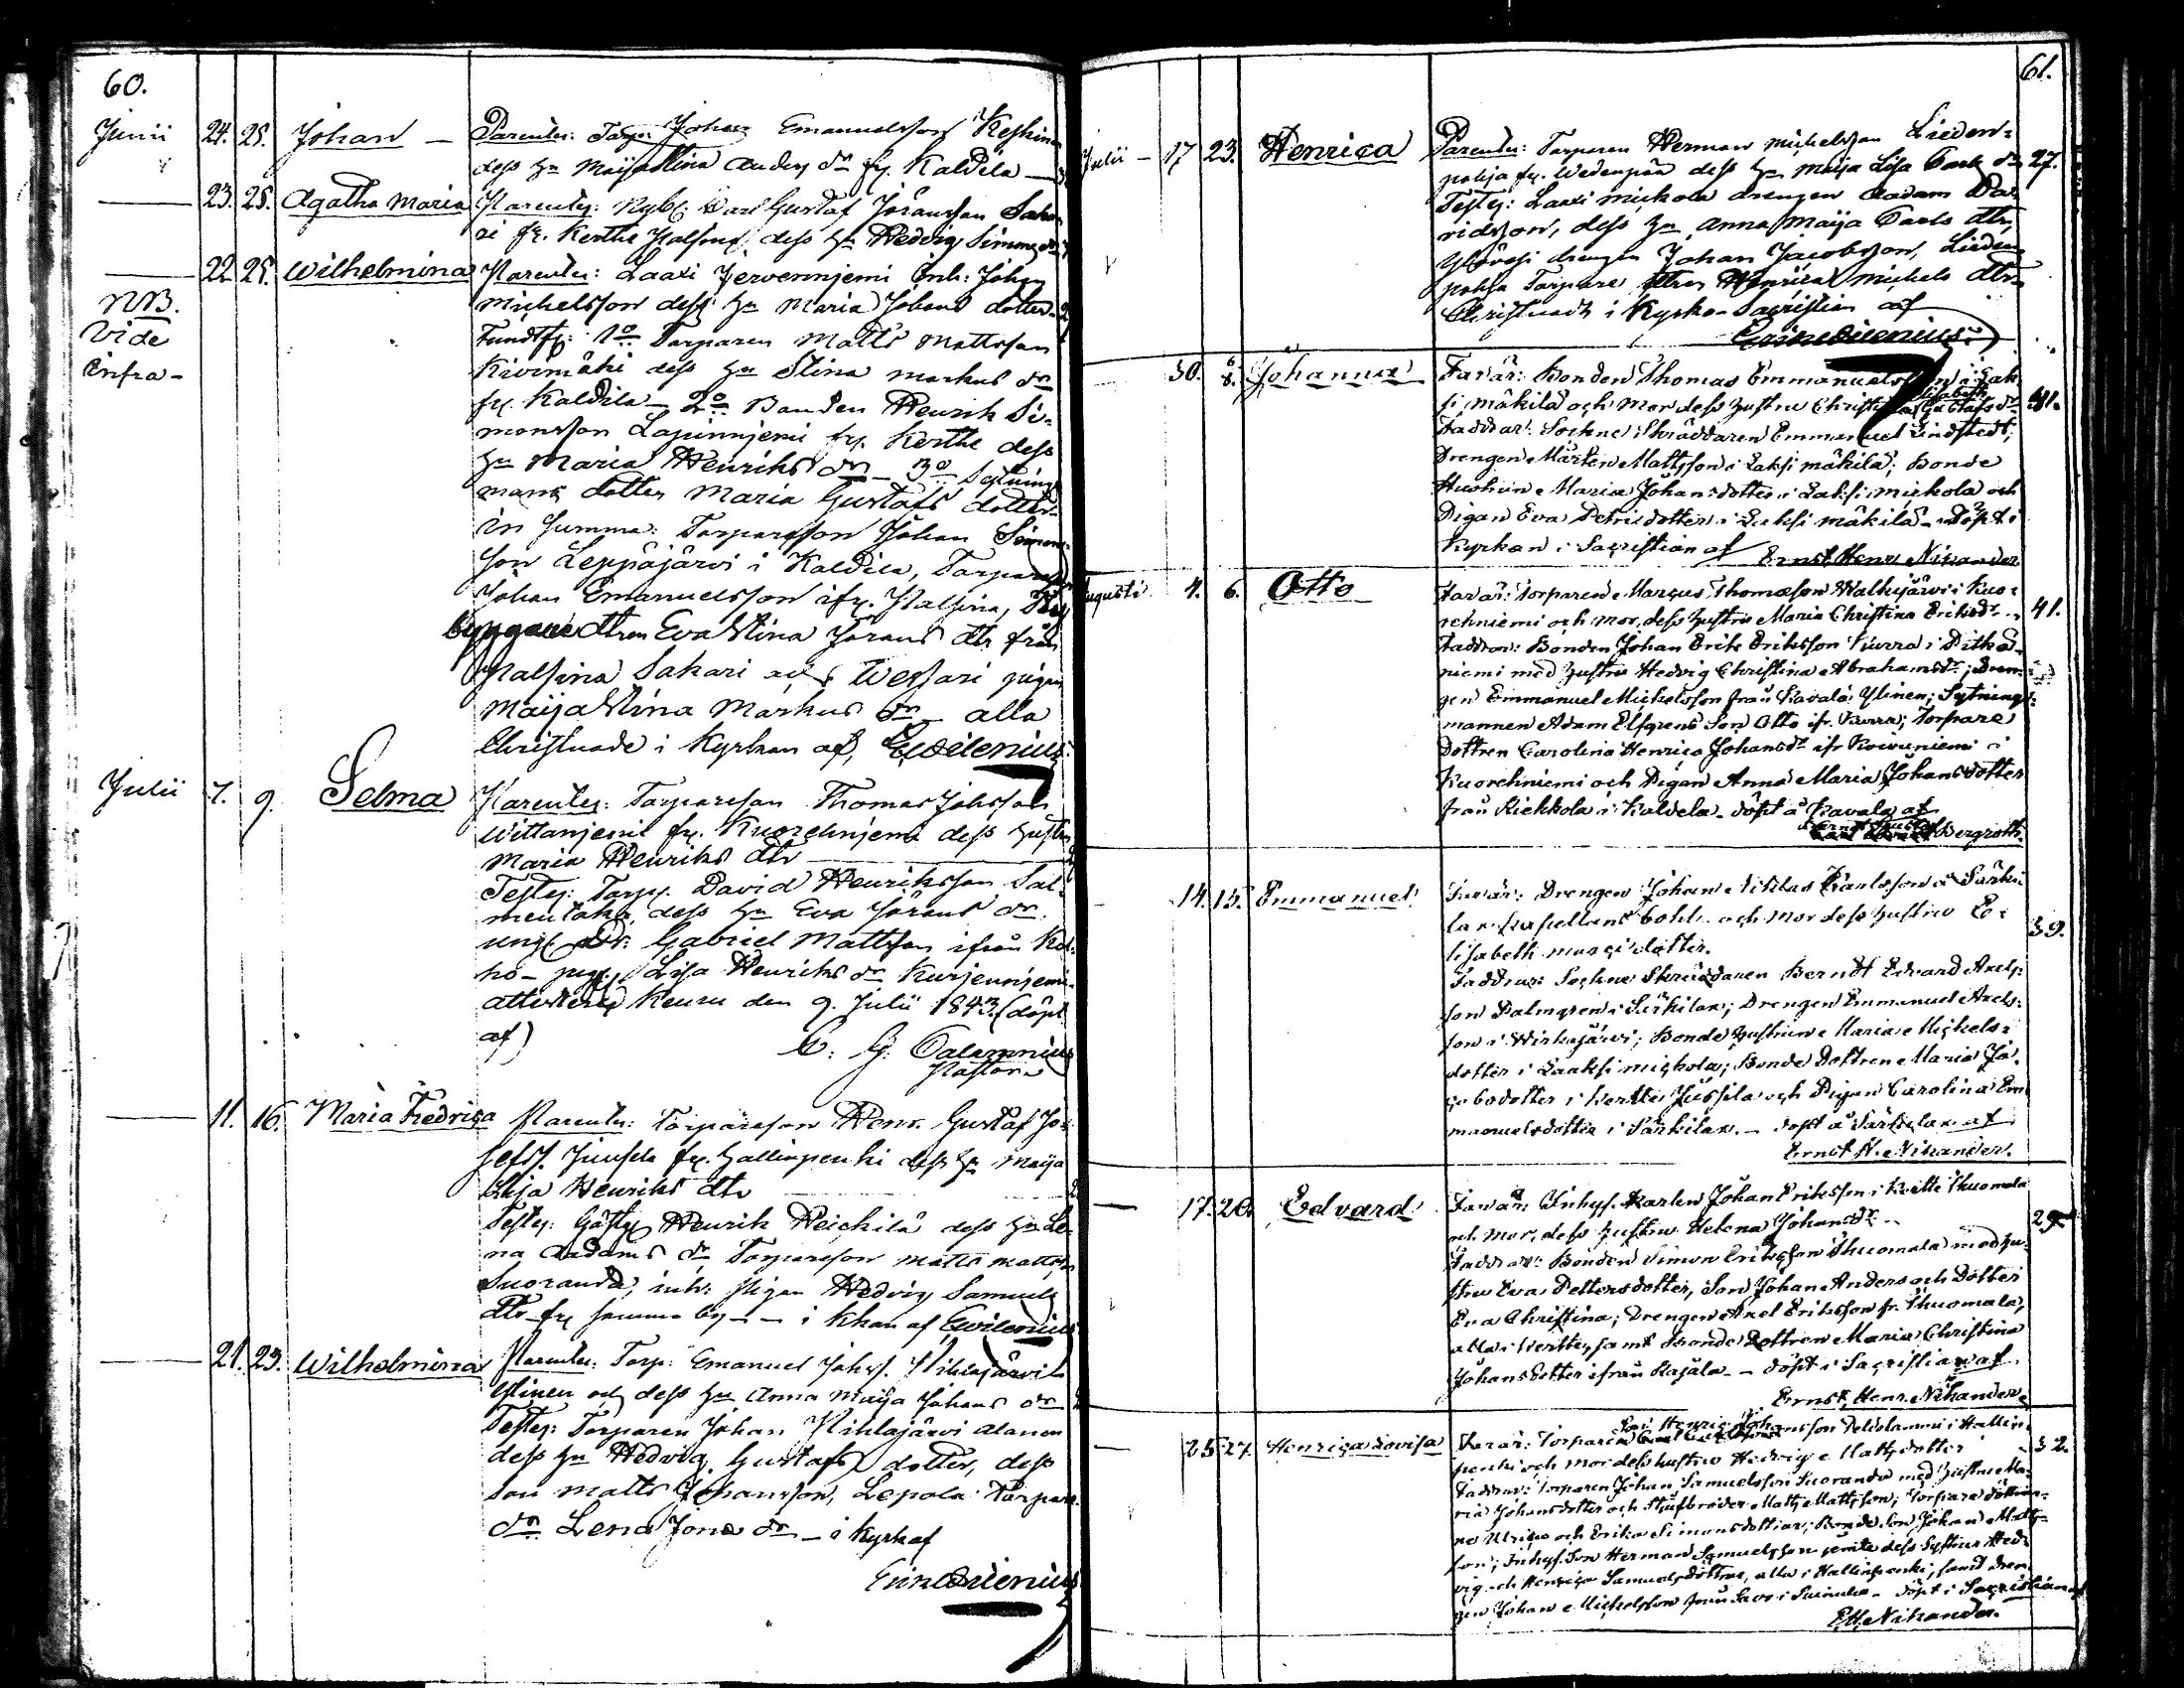 60.
Junii 24. 25. Johan — Parentes: Torp: Johan Emanuelsson Keskinen
dess Hu Maija Stina Anders dr fr. Kaldila —
— 23. 25. Agatha Maria Parentes: Nyb: Carl Gustaf Göransson Saka
ri fr. Kerthe Palsina dess Hu Hedvig Simons dr
— 22 25. Wilhelmina Parentes: Laaxi Jervennjemi Inh: Johan
NB. Michelsson dess Hu Maria Johans dotter
Vide Torparen Matts Mattsson
Infra — Kivimäki dess Hu Stina Markus dr
fr. Kaldila — 2o Bonden Henrik Si-
monsson Lapinnjemi fr. Kerthe dess
Hu Maria Henriks dr — 3o Sytnings
mans dotter Maria Gustafs dotter
in summa: Torparesson Johan Simons-
son Leppäjärvi i Kaldila, Torpare
Johan Emanuelsson ifr. Palsina, Ny
byggare dtren Eva Stina Görans dtr från
Palsina Sakari och Wessari pigan
Maija Stina Markus dr — alla
Christnade i Kyrkan af,
Julii 7. 9. Selma Parentes: Torparesson Thomas Johsson
Wittanjemi fr. Kuorehnjemi dess Hustru
Maria Henriks dtr
Testes: Torp. David Henriksson Sal-
dess Hu Eva Görans dr
ungk. Dr: Gabriel Mattsson ifrån Kol-
ho — pig. Lisa Henriks dr Kurjennjemi
attesterar Keuru den 9. Julii 1843 (döpt
af)
C. G. Calamnius
Pastor
— 11. 16. Maria Fredrica Parentes: Torparesson Henr. Gustaf Jo-
sefss. Juusela fr. Hallinpenki dess Hu Maija
Lisa Henriks dtr
Testes: Henrik Heickilä dess Hu Le-
na Adams dr, Torparesson Matts Mattss.
Suoranda, inh: Pigan Hedvig Samuels
dtr fr. samma by — — i Khan af
— 21. 23. Wilhelmina Parentes: Torp: Emanuel Johss. Pihlajärvi
Ylinen och dess Hu Anna Maija Johans dr
Testes: Torparen Johan Pihlajärvi Alanen
dess Hu Hedvig Gustafs dotter, dess
son Matts Johansson, Lepola Torpare
dr Lena Jona dr — i Kyrk af
61.
Julii — 17 23. Henrica Parentes: Torparen Herman Michelsson Lieden-
pohja fr. Wedenpää dess Hu Maija Lisa Carls dr 27.
Testes: Laaxi Mickola drengen Aadam Da-
vidsson, dess Hu Anna Maija Carls dtr,
drengen Johan Jacobsson, Lieden
pohja Torpare dtren Henrica Michels dtr
Christnadt i Kyrko-Sacristian af
30. 6/8. Johanna Far är: Bonden Thomas Emmanuelsson i Lak-
si mäkilä och Mor dess hustru Christina Elisabeth Gustafs dr 41.
Faddrar: Sockne Skräddaren Emmanuel Lindstedt;
Drengen Mårten Mattsson i Laksi mäkilä; Bonde
Hustrun Maria Johansdotter i Laksi mickola och
Pigan Eva Petri dotter i Laksi mäkilä — döpt i
Kyrkan i Sacristian af Ernst Henr Nikander
Augusti 4. 6. Otto Far är: Torparen Marcus Thomasson Walkejärvi i Kuo-
rehniemi och mor, dess hustru Maria Christina Eriksdr — 41.
Faddrar: Bonden Johan Erik Eriksson Kurra i Pitkä-
niemi med hustru Hedvig Christina Abrahamsdr; Dren-
gen Emmanuel Michelsson från Kavala Ylinen; Sytnings-
mannen Adam Elfgrens Son Otto ifr. Kurra; Torpare
Dottren Carolina Henrica Johansdr ifr Koivuniemi i
Kuorehniemi och Pigan Anna Maria Johansdotter
från Riekkola i Kaldela — döpt å Kavala af
Bergroth.
— 14. 15. Emmanuel Far är: Drengen Johan Niklas Karlsson å Särki
lax Kapellans bohl — och Mor dess hustru E-
lisabeth marci dotter. 39.
Faddrar: Sockne Skräddaren Berndt Edvard Axels-
son Palmgren i Särkilax; Drengen Emmanuel Axels-
son i Wirkajärvi; Bonde hustrun Maria Michels-
dotter i Laaksi mickola; Bonde Dottren Maria Ja-
cobsdotter i Kertte Jussila och Pigan Carolina Em-
manuelsdotter i Särkilax. — döpt å Särkilax af
Ernst H. Nikander.
— 17. 20. Edvard Far är: Inhys. Karlen Johan Eriksson i Kertte Thuomala
och Mor, dess hustru Helena Johansdr — 29
Faddrar: Bonden Simon Eriksson Thuomala med hu-
stru Eva Pettersdotter, Son Johan Anders och Dotter
Eva Christina; Drengen Axel Eriksson fr. Thuomala,
alla i Kertte, samt Bonde Dottren Maria Christina
Johansdotter ifrån Rajala — döpt i Sacristian af
Ernst Henr. Nikander
— 25 27. Henrica Lovisa Far är: Torparen Johansson Peldolammi i Hallin-
penki och Mor dess hustru Hedvig Mattsdotter — 32.
Faddrar: Torparen Johan Samuelsson Suoranda med hustru Ma-
ria Johansdotter och Styfbroder Matts Mattsson; Torpare döttrar-
na Ulrica och Erika Simonsdöttrar; Bonde Son Johan Matts-
son; Inhys. Son Herman Samuelsson jemte dess Systrar Hed-
vig och Henrica Samuelsdöttrar, alla i Hallinpenki, samt Dren-
gen Johan Michelsson från Savo i Suinula — döpt i Sacristian af
E. H. Nikander.